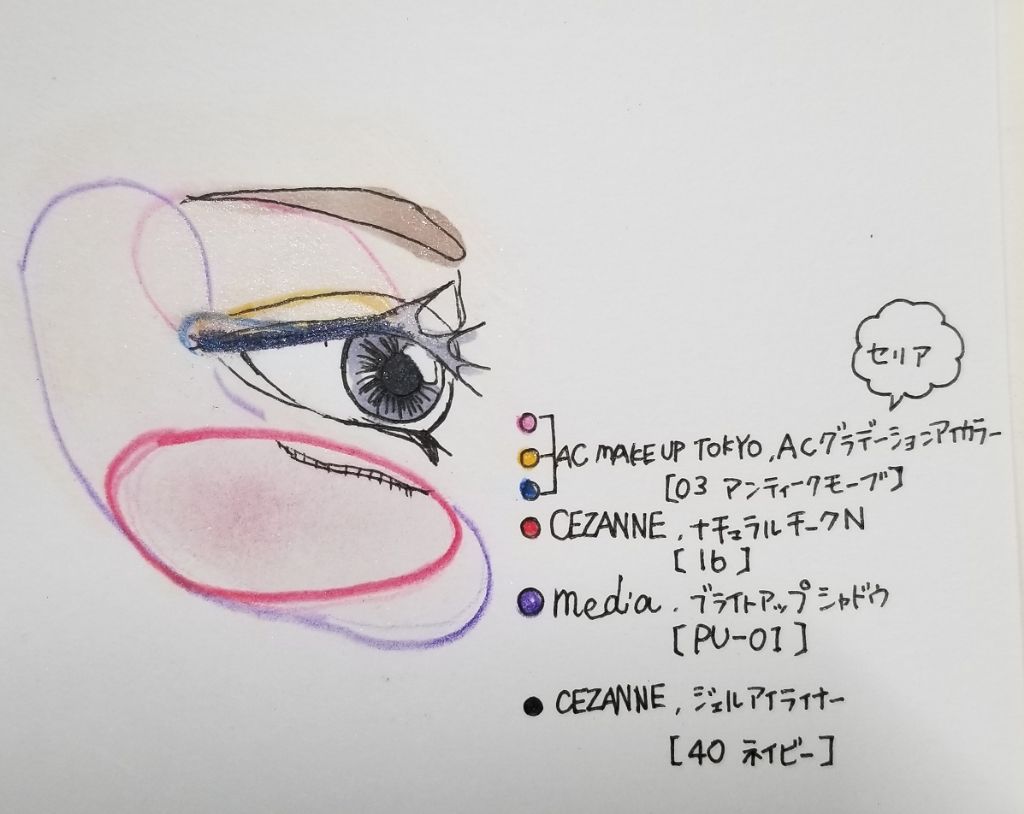 セリア
AC MAKE UP TOKYO, ACグラデーションアイカラー
[03 アンティークモーブ]
CEZANNE, ナチュラルチークN
[16]
media, ブライトアップシャドウ
[PU-01]
CEZANNE, ジェルアイライナー
[40 ネイビー]